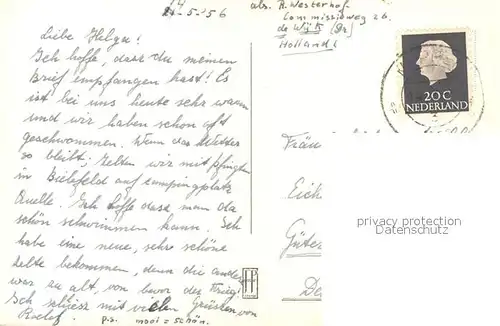 14
21-5-'56
Liebe Helga!
Ich hoffe, dasz du meinen
Brief empfangen hast! Es
ist bei uns heute sehr warm
und wir haben schon oft
geschwommen. Wenn das Wetter
so bleibt, zelten wir mit Pfingsten
in Bielefeld auf campingplatz
Quelle. Ich hoffe dasz man da
schön schwimmen kann. Ich
habe eine neue, sehr schöne
zelte bekommen, denn die andere
war zu alt, von bevor des Krieg!
Ich schliesz mit vielen Grüszen von
Roelof.
P.S. mooi = schön.
abs. R. Westerhof
Commissieweg 26
de Wijk (Dr)
Holland!
20C
NEDERLAND
Fräu
Eick
Güters
De
privacy protection
Datenschutz